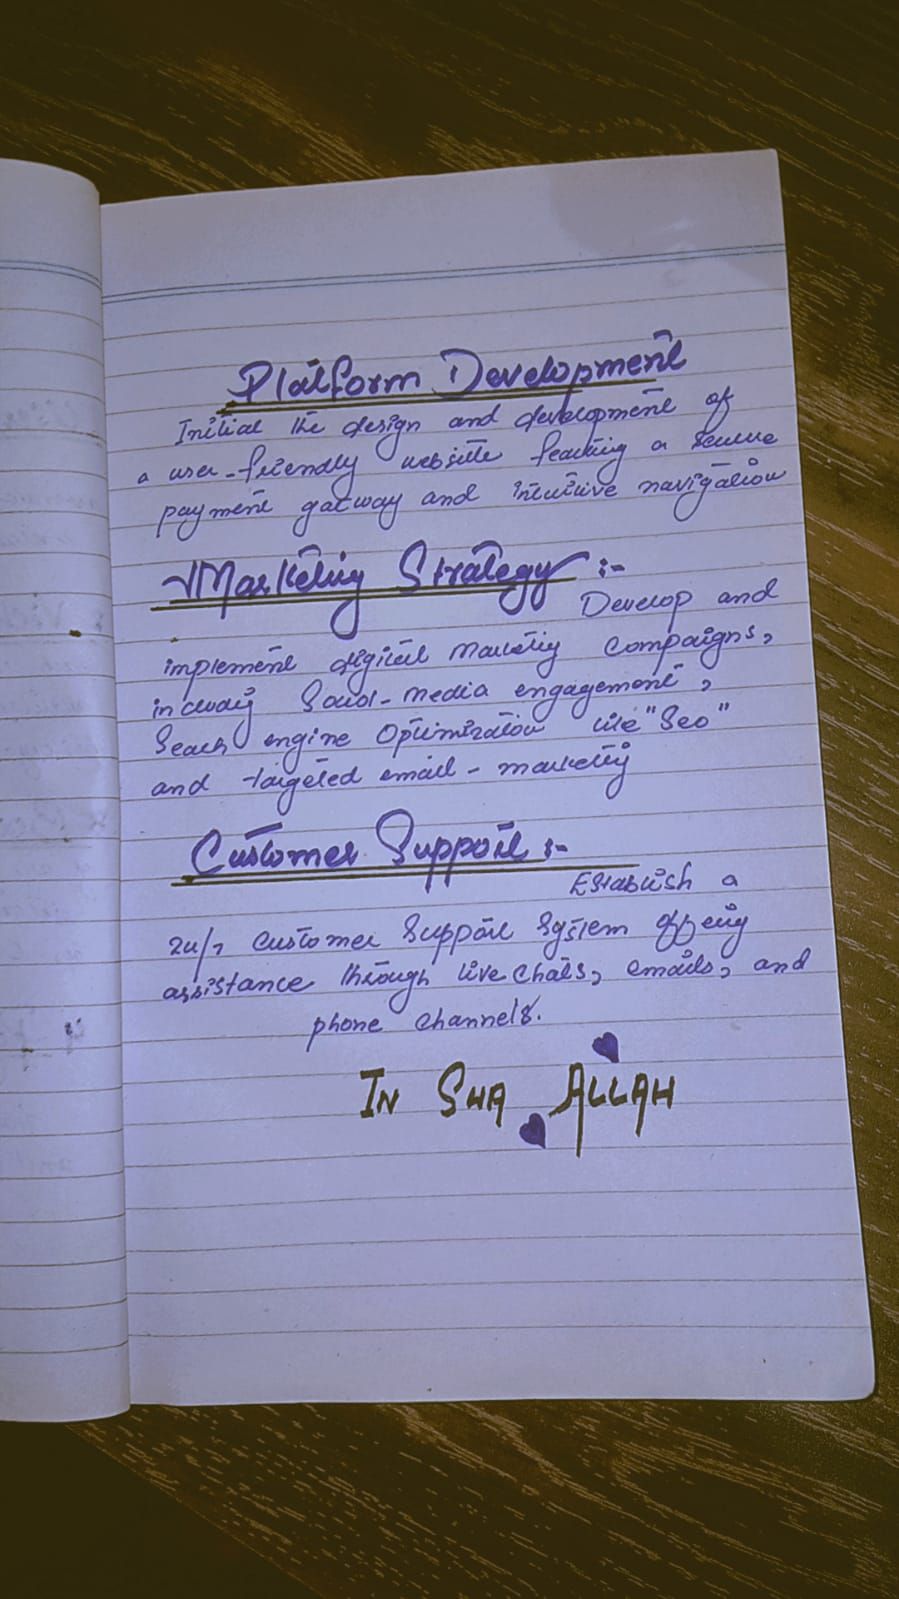 Platform Development
Initial the design and development of
a user-friendly website feating a secure
payment gatway and intuitive navigation
Marketing Strategy :-
Develop and
implement digital marketing campaigns,
including Social-media engagement,
Seach engine Optimization like "Seo"
and targeted email-marketing
Customer Support :-
Establish a
24/7 customer Support System offering
assistance through live chats, emails, and
phone channels.
IN SHA ALLAH